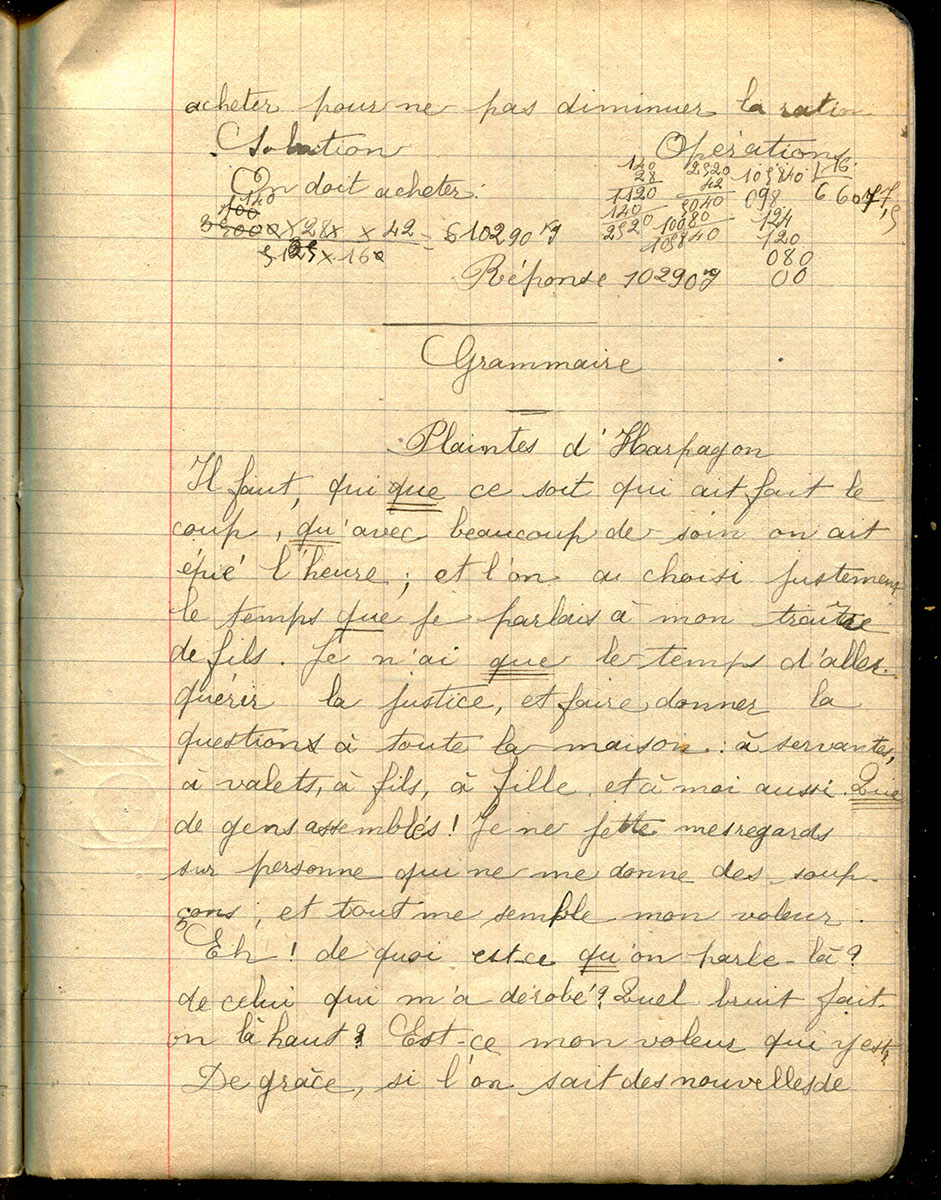 acheter pour ne pas diminuer la ration
Solution Opérations
On doit acheter:
140 2520 105840 16
28 42 098 6607,5
1120 5040 124
140 10080 120
2520 105840 080
00
100 140
× 28 × 42 = 10290 kg
125 × 160
Réponse 10290 kg
Grammaire
Plaintes d'Harpagon
Il faut, qui que ce soit qui ait fait le
coup, qu'avec beaucoup de soin on ait
épié l'heure; et l'on a choisi justement
le temps que je parlais à mon traître
de fils. Je n'ai que le temps d'aller
quérir la justice, et faire donner la
question à toute la maison: à servantes,
à valets, à fils, à fille et à moi aussi. Que
de gens assemblés! Je ne jette mes regards
sur personne qui ne me donne des soup-
çons, et tout me semble mon voleur.
Eh! de quoi est-ce qu'on parle-là?
de celui qui m'a dérobé? Quel bruit fait-
on là haut? Est-ce mon voleur qui y est?
De grâce, si l'on sait des nouvelles de